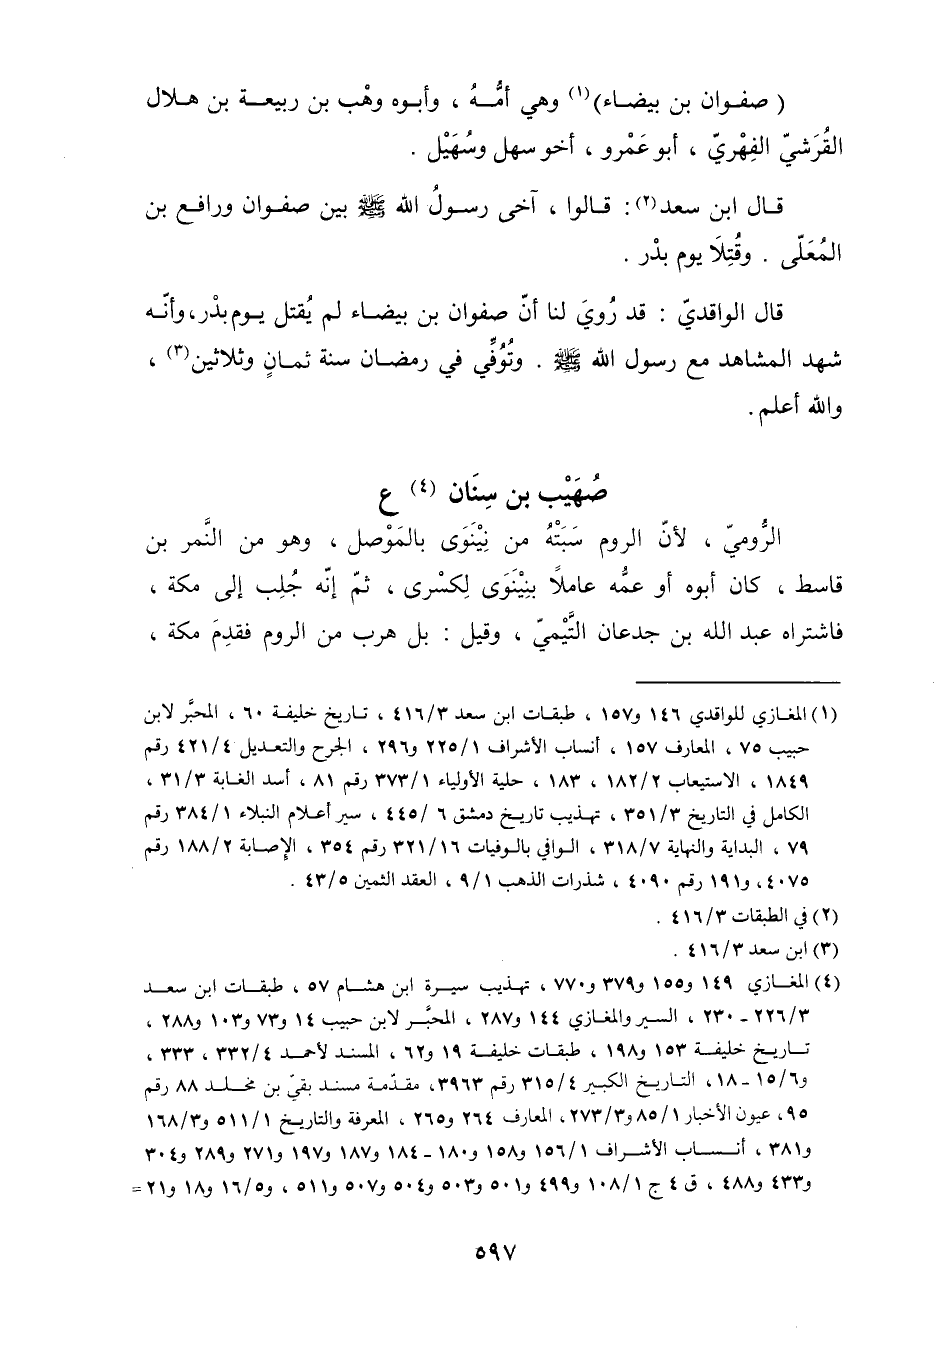 ( صفوان بن بيضاء)(١) وهي أمُّهُ ، وأبوه وهْب بن ربيعة بن هلال
القُرَشيّ الفِهْريّ ، أبو عَمْرو ، أخو سهل وسُهَيْل .
قال ابن سعد(٢): قالوا ، آخى رسولُ الله ﷺ بين صفوان ورافع بن
المُعَلّى . وقُتِلَا يوم بدْر .
قال الواقديّ : قد رُويَ لنا أنّ صفوان بن بيضاء لم يُقتل يوم بدْر، وأنّه
شهد المشاهد مع رسول الله ﷺ . وتُوُفِّي في رمضان سنة ثمانٍ وثلاثين(٣) ،
والله أعلم.
صُهَيْب بن سِنَان (٤) ع
الرُّوميّ ، لأنّ الروم سَبَتْهُ من نِيْنَوَى بالمَوْصل ، وهو من النَّمر بن
قاسط ، كان أبوه أو عمُّه عاملًا بنِيْنَوَى لِكسْرى ، ثمّ إنّه جُلِب إلى مكة ،
فاشتراه عبد الله بن جدعان التَّيْميّ ، وقيل : بل هرب من الروم فقدِمَ مكة ،
(١) المغازي للواقدي ١٤٦ و١٥٧ ، طبقات ابن سعد ٤١٦/٣ ، تاريخ خليفة ٦٠ ، المحبَّر لابن
حبيب ٧٥ ، المعارف ١٥٧ ، أنساب الأشراف ٢٢٥/١ و٢٩٦ ، الجرح والتعديل ٤٢١/٤ رقم
١٨٤٩ ، الاستيعاب ١٨٢/٢ ، ١٨٣ ، حلية الأولياء ٣٧٣/١ رقم ٨١ ، أسد الغابة ٣١/٣ ،
الكامل في التاريخ ٣٥١/٣ ، تهذيب تاريخ دمشق ٦ /٤٤٥ ، سير أعلام النبلاء ٣٨٤/١ رقم
٧٩ ، البداية والنهاية ٣١٨/٧ ، الوافي بالوفيات ٣٢١/١٦ رقم ٣٥٤ ، الإصابة ١٨٨/٢ رقم
٤٠٧٥، و١٩١ رقم ٤٠٩٠ ، شذرات الذهب ٩/١ ، العقد الثمين ٤٣/٥ .
(٢) في الطبقات ٤١٦/٣ .
(٣) ابن سعد ٤١٦/٣ .
(٤) المغازي ١٤٩ و١٥٥ و٣٧٩ و٧٧٠ ، تهذيب سيرة ابن هشام ٥٧ ، طبقات ابن سعد
٢٢٦/٣ ـ ٢٣٠ ، السير والمغازي ١٤٤ و٢٨٧ ، المحبَّر لابن حبيب ١٤ و٧٣ و١٠٣ و٢٨٨ ،
تاريخ خليفة ١٥٣ و١٩٨ ، طبقات خليفة ١٩ و٦٢ ، المسند لأحمد ٣٣٢/٤ ، ٣٣٣ ،
و١٥/٦ ـ ١٨ ، التاريخ الكبير ٣١٥/٤ رقم ٣٩٦٣، مقدّمة مسند بقيّ بن مخلد ٨٨ رقم
٩٥، عيون الأخبار ٨٥/١ و٢٧٣/٣، المعارف ٢٦٤ و٢٦٥ ، المعرفة والتاريخ ٥١١/١ و١٦٨/٣
و٣٨١ ، أنساب الأشراف ١٥٦/١ و١٥٨ و١٨٠ ـ ١٨٤ و١٨٧ و١٩٧ و٢٧١ و٢٨٩ و٣٠٤
و٤٣٣ و٤٨٨ ، ق ٤ ج ١٠٨/١ و٤٩٩ و٥٠١ و٥٠٣ و٥٠٤ و٥٠٧ و٥١١ ، و١٦/٥ و١٨ و٢١=
٥٩٧